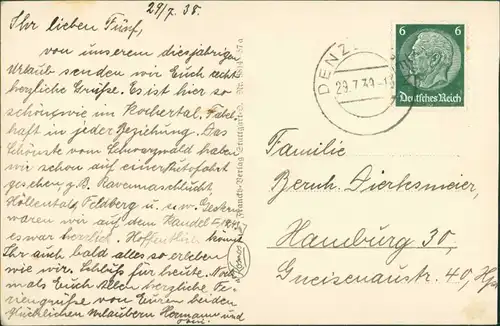 29/7. 38.
Ihr lieben Fünf,
von unserem diesjährigen
Urlaub senden wir Euch recht
herzliche Grüße. Es ist hier so
schön wie im Kochertal, Fabel-
haft in jeder Beziehung. Das
Schönste vom Schwarzwald haben
wir schon auf einer Autofahrt
gesehen z. B. Ravennaschlucht,
Höllental, Feldberg u. s. w. Gestern
waren wir auf dem Kandel
es war herrlich. Hoffentlich könnt
Ihr auch bald alles so erleben
wie wir. Schluß für heute. Noch-
mals Euch Allen herzliche Fe-
riengrüße von Euren beiden
glücklichen Urlaubern Hermann und
Franckh-Verlag Stuttgart-O.
DENZ
29.7.39
6 6
Deutsches Reich
Familie
Bernh. Dierkesmeier,
Hamburg 30,
Gneisenaustr. 40, Hps